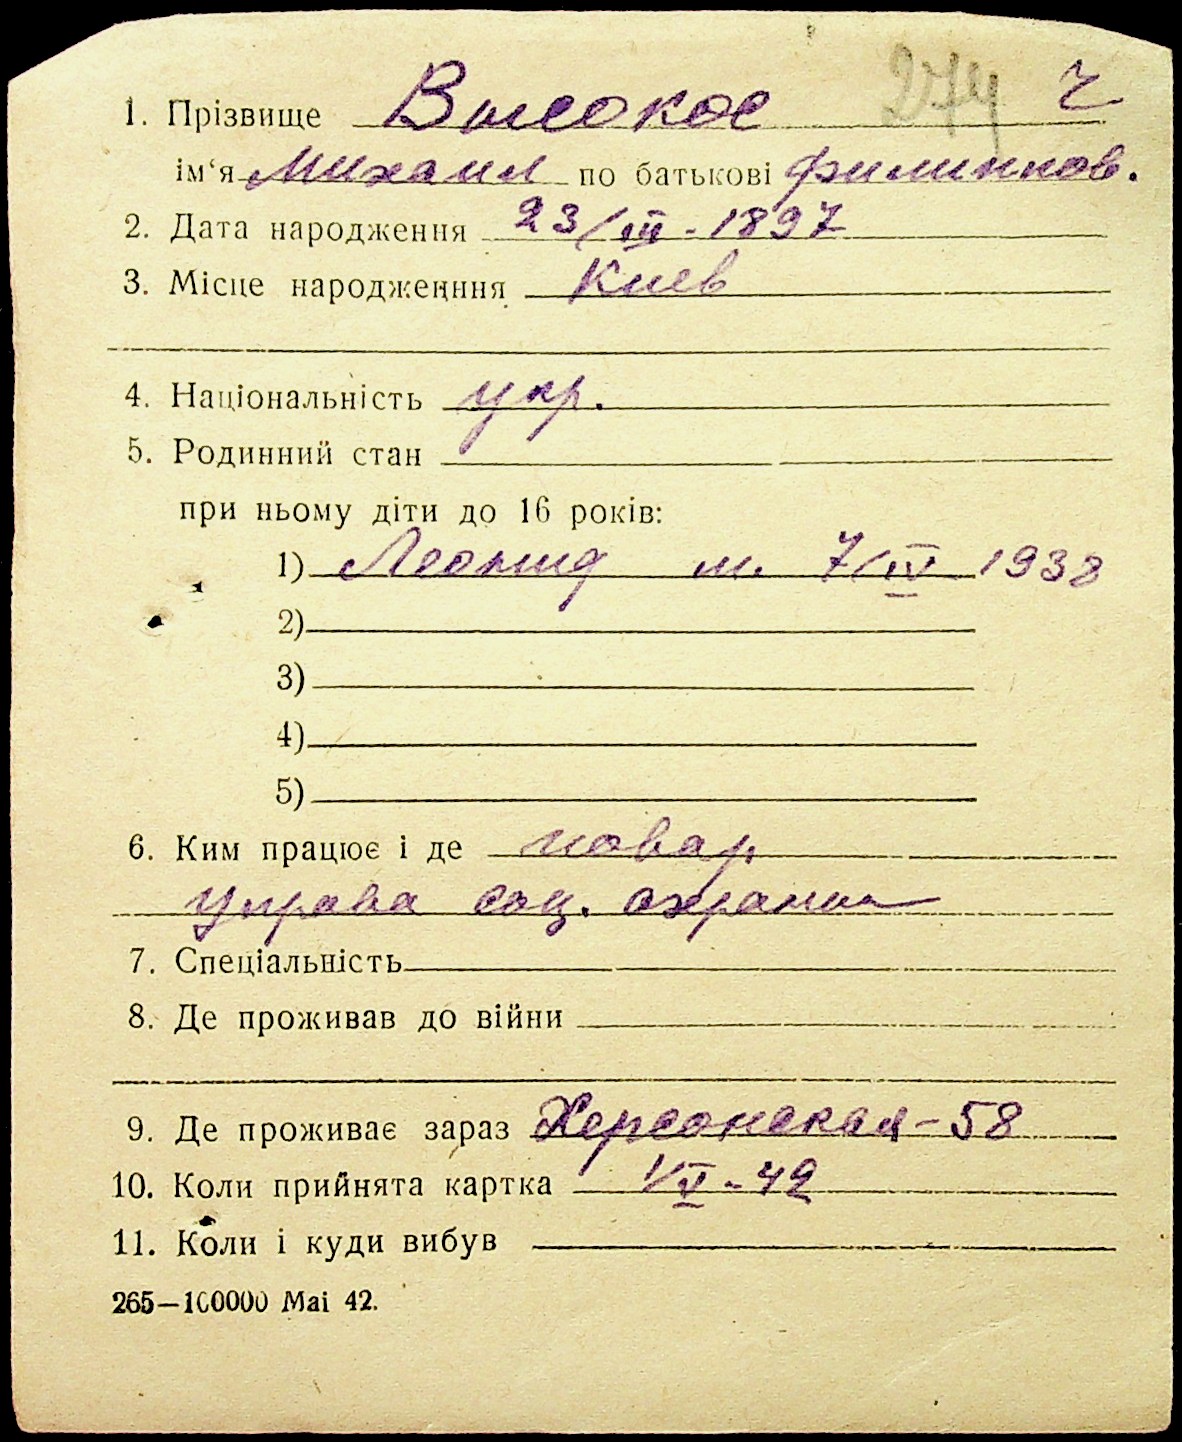 274 ч
1. Прізвище Высокос
ім‘я Михаил по батькові Филимонов.
2. Дата народження 23/III - 1897
3. Місце народженння Киев
4. Національність укр.
5. Родинний стан
при ньому діти до 16 років:
1) Леонид м. 7/IV 1938
2)
3)
4)
5)
6. Ким працює і де повар
управа соц. охраны
7. Спеціальність
8. Де проживав до війни
9. Де проживає зараз Херсонская-58
10. Коли прийнята картка 1/V-42
11. Коли і куди вибув
265—100000 Mai 42.